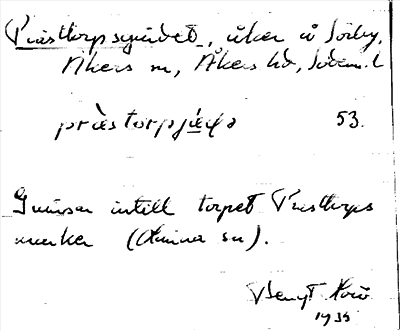 Prästtorpsgärdet, åker å Sörby,
Åkers sn, Åkers hd, Söderm. l
prästorpjæḍə 53.
Gränsar intill torpet Prästtorps
marker (Länna sn).
Bengt
1935